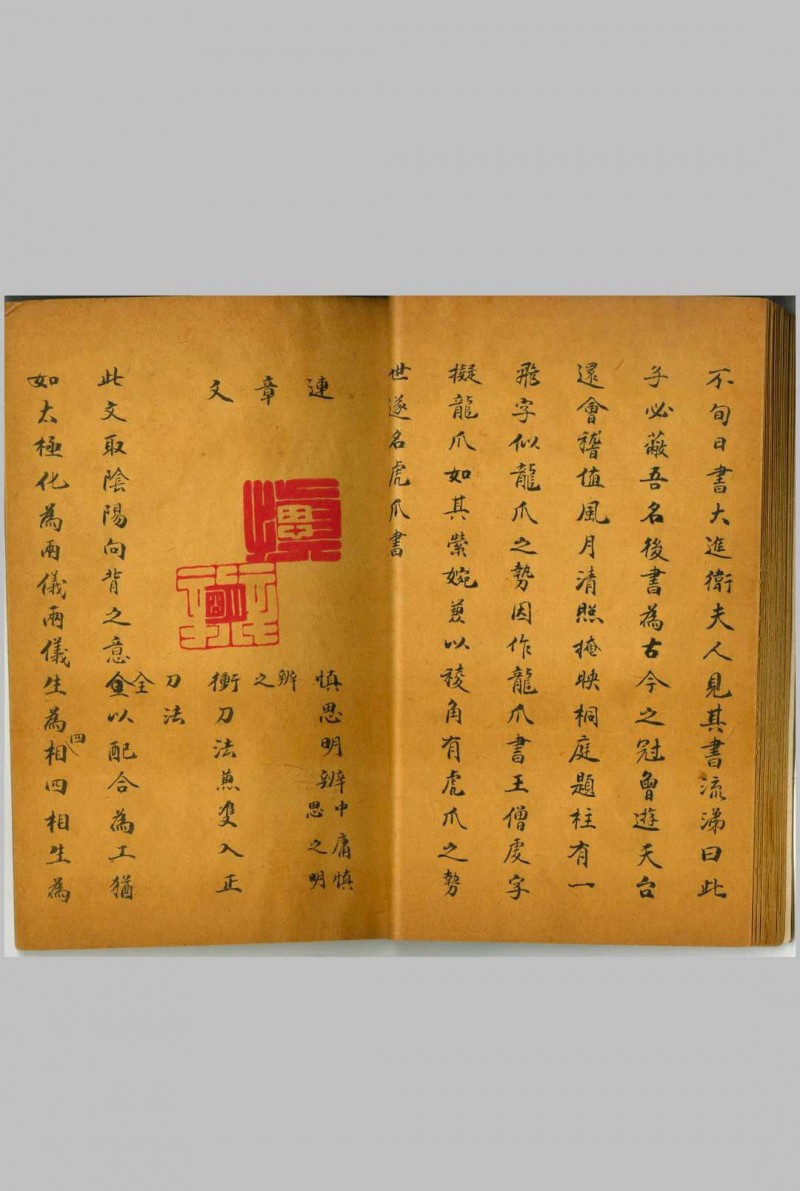 不旬日書大進衛夫人見其書流涕曰此
子必蔽吾名後書為古今之冠曾遊天台
還會稽值風月清照掩映桐庭題柱有一
飛字似龍爪之勢因作龍爪書王僧虔字
擬龍爪如其縈婉兼以稜角有虎爪之勢
世遂名虎爪書
連章文
慎思明辨中庸慎
思之明
辨之
衝刀法兼雙入正
刀法
此文取陰陽向背之意全以配合為工猶
全
如太極化為兩儀兩儀生為相四相生為
四